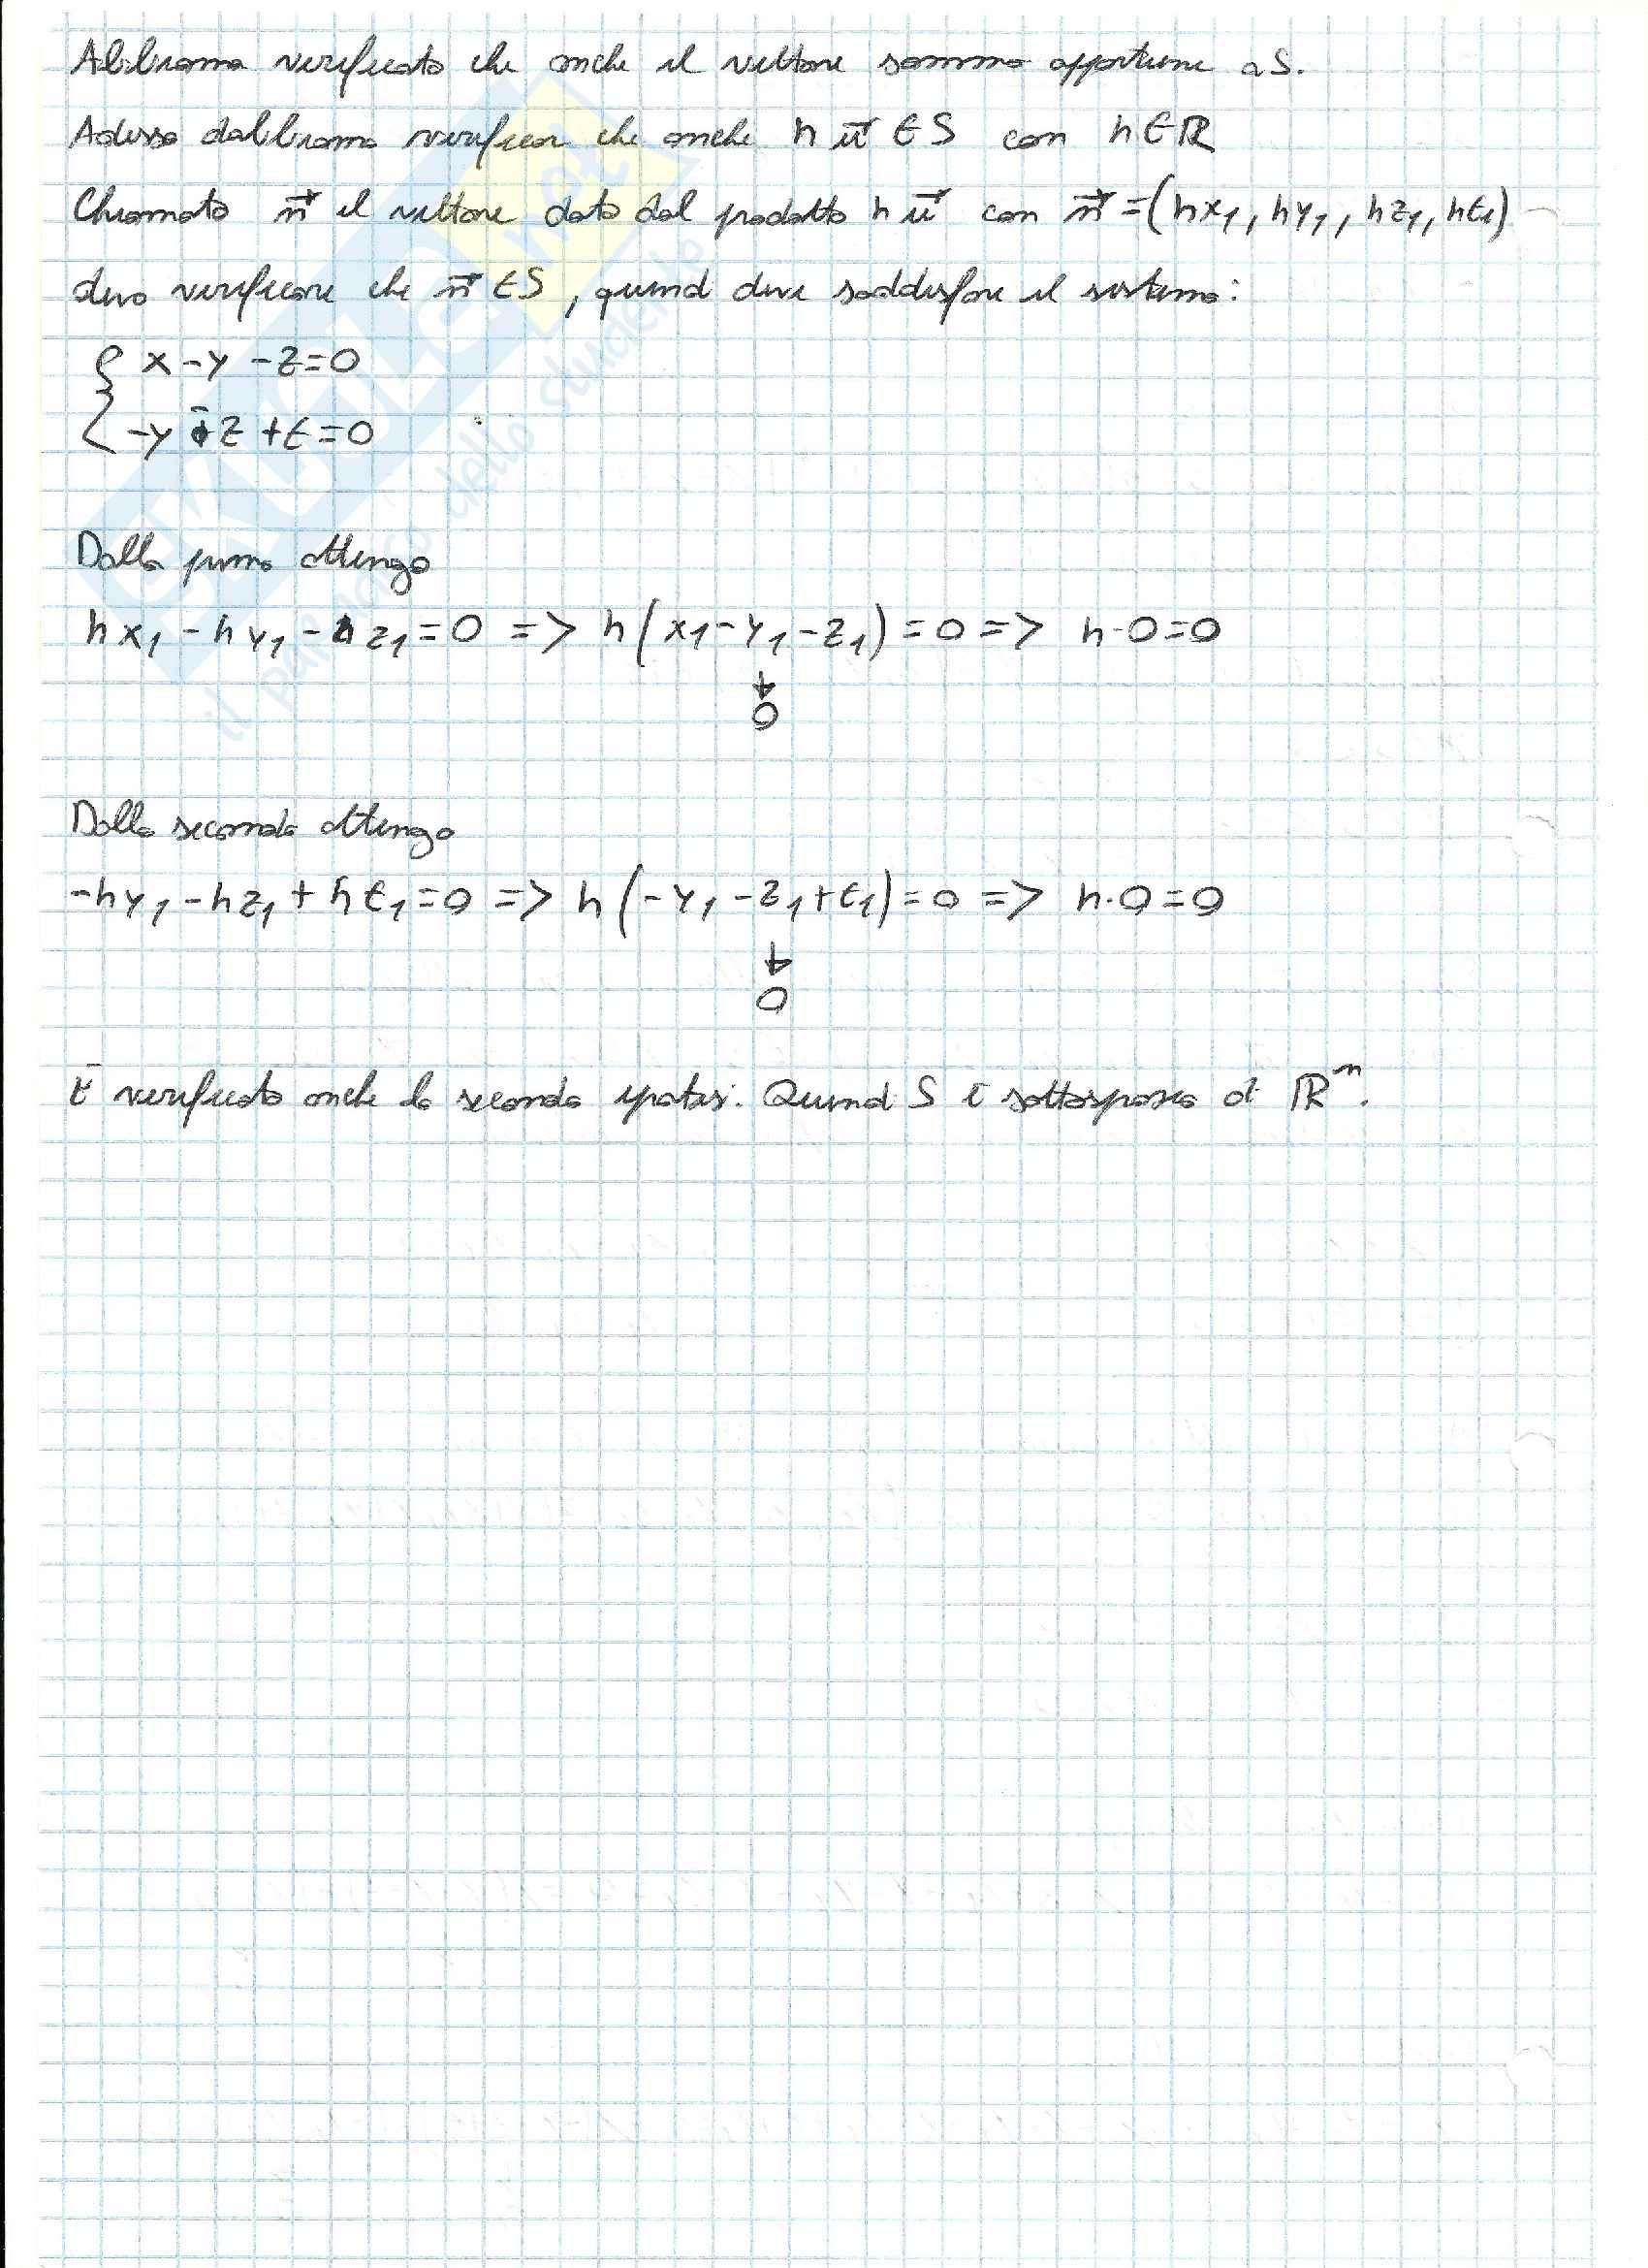 Abbiamo verificato che anche il vettore somma appartiene a S.
Adesso dobbiamo verificare che anche h u⃗ ∈ S con h ∈ ℝ
Chiamato n⃗ il vettore dato dal prodotto h u⃗ con n⃗ = (hx₁, hy₁, hz₁, ht₁)
devo verificare che n⃗ ∈ S, quind deve soddisfare il sistema:
{ x - y - z = 0
-y - z + t = 0
Dalla prima ottengo
hx₁ - hy₁ - hz₁ = 0 => h(x₁ - y₁ - z₁) = 0 => h·0 = 0
↓
0
Dalla seconda ottengo
-hy₁ - hz₁ + ht₁ = 0 => h(-y₁ - z₁ + t₁) = 0 => h·0 = 0
↓
0
È verificata anche la seconda ipotesi. Quindi S è sottospazio di ℝⁿ.
il paradiso dello studente